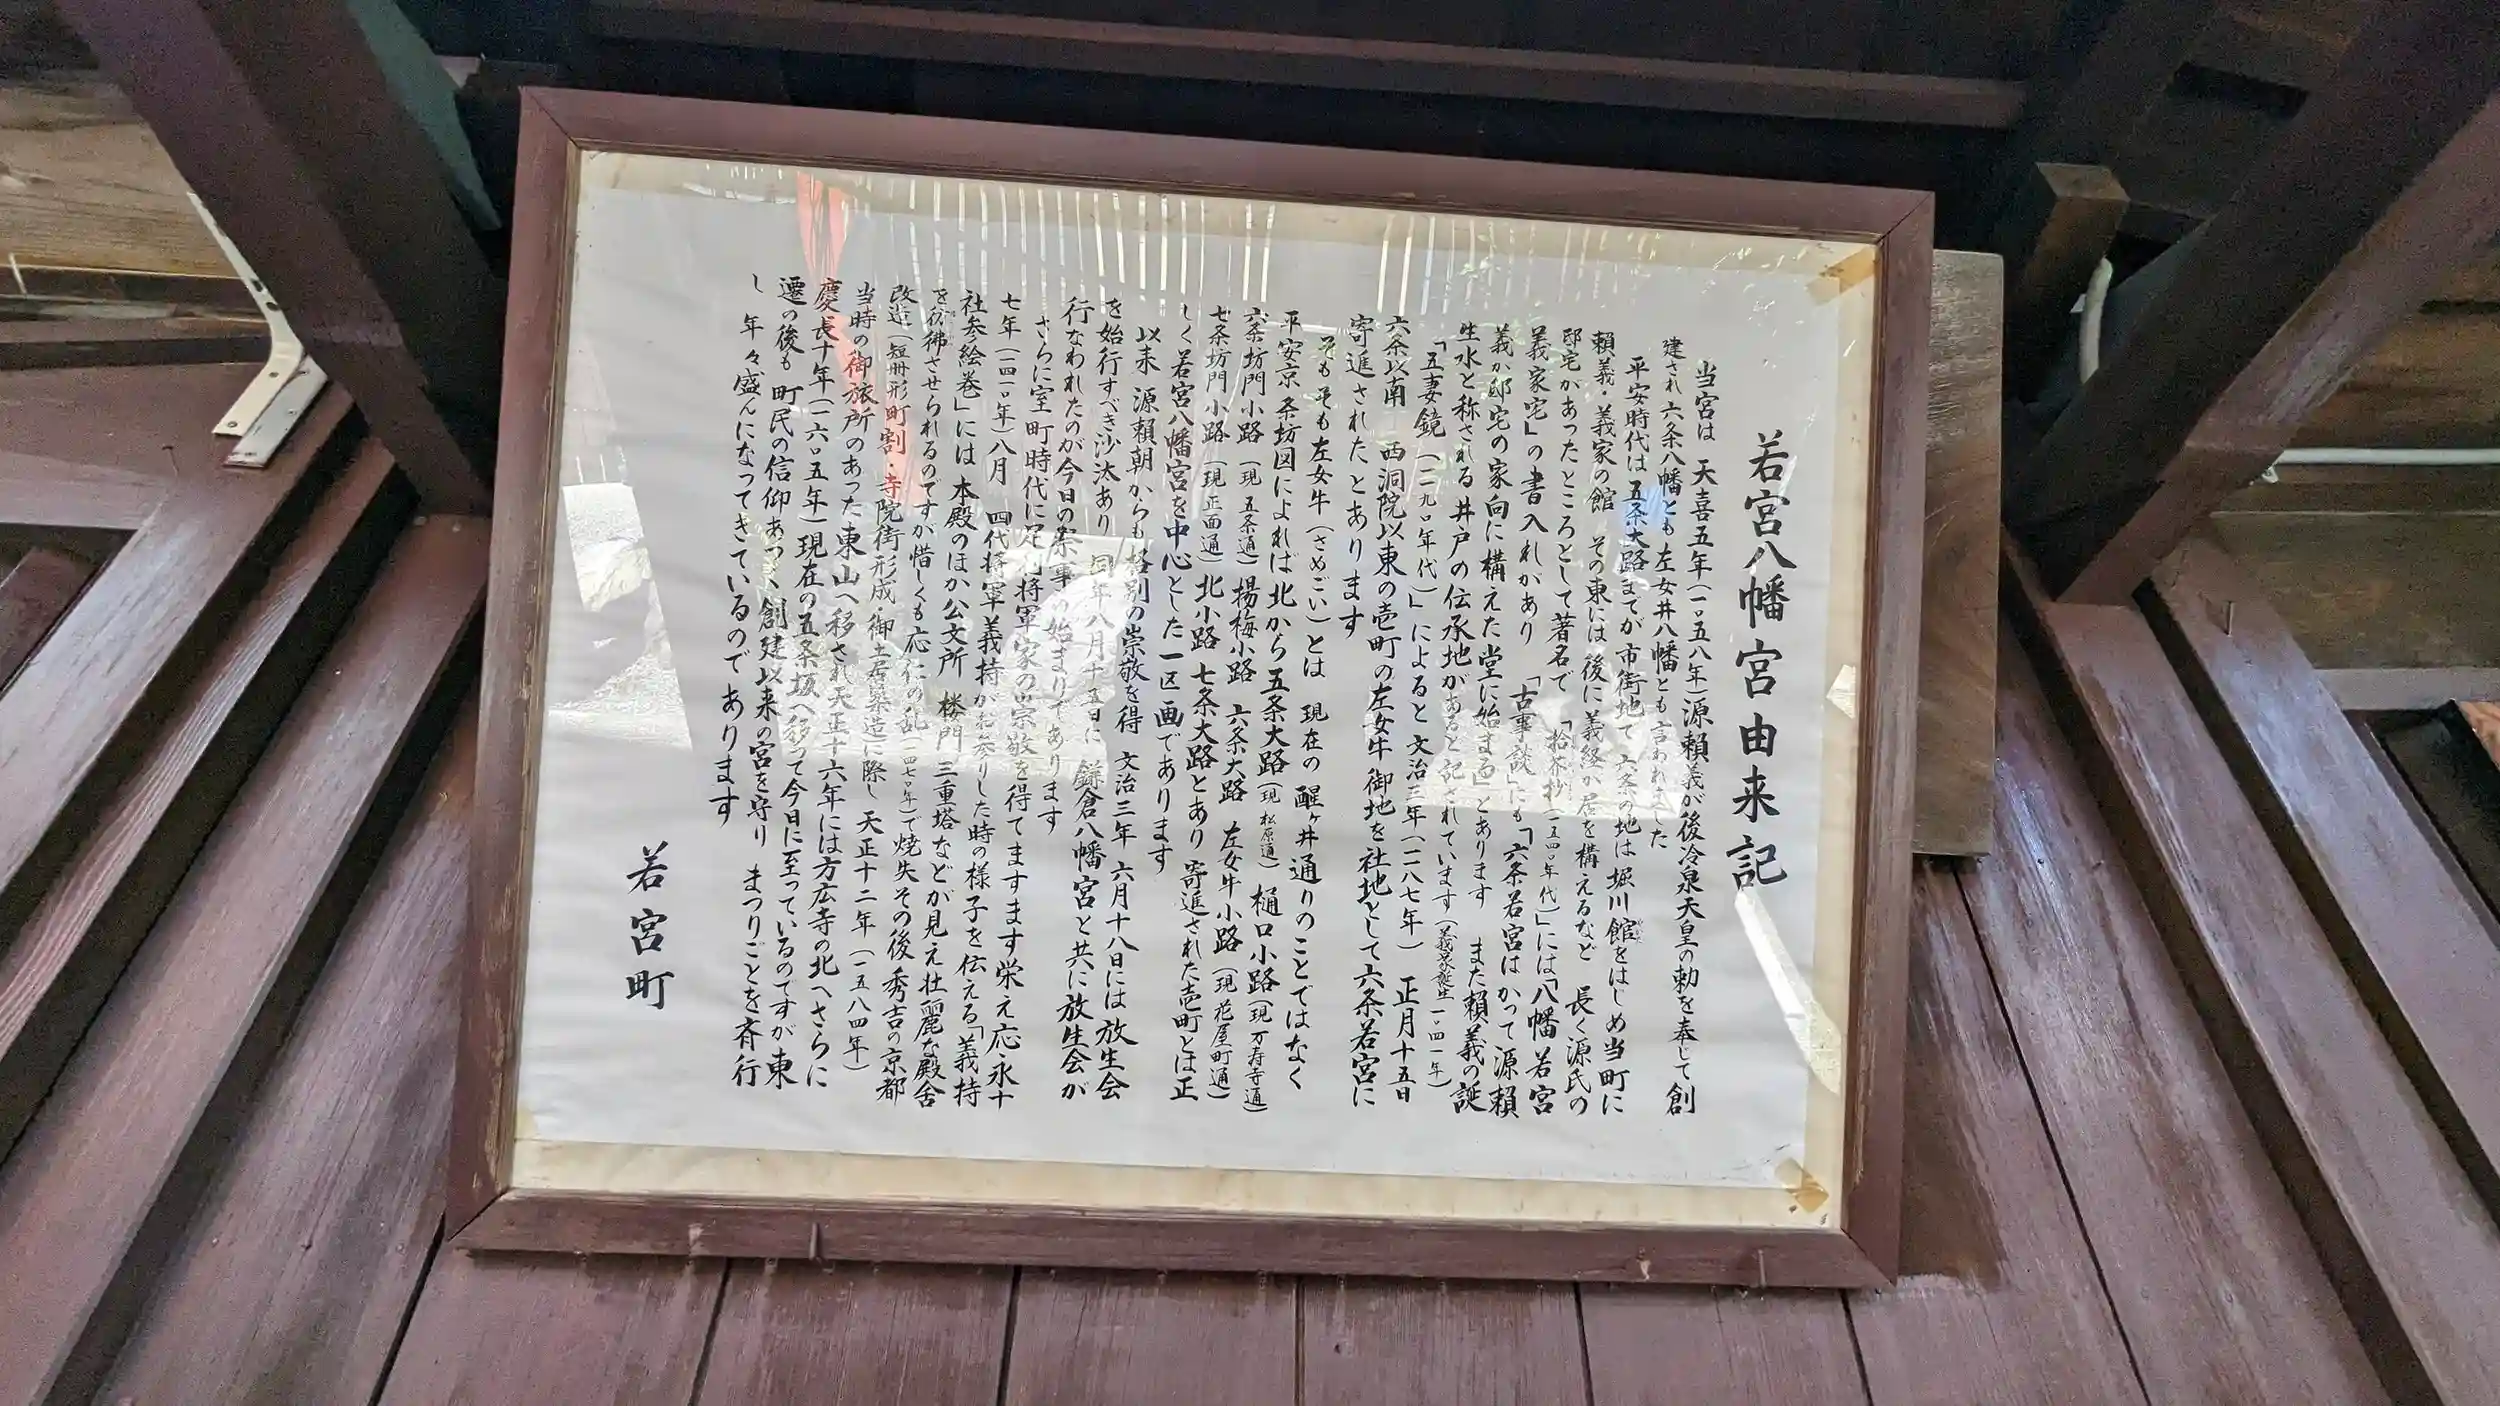 若宮八幡宮由来記
当宮は 天喜五年(一〇五八年)源頼義が後冷泉天皇の勅を奉じて創
建され 六条八幡とも左女井八幡とも言われました
平安時代は五条大路までが市街地で 六条の地は 堀川館をはじめ当町に
頼義・義家の館 その東には後に義経が居を構えるなど 長く源氏の
邸宅があったところとして著名で 「拾芥抄(一三四〇年代)」には「八幡若宮
義家宅」の書入れがあり 「古事談」にも「六条若宮はかって源頼
義が邸宅の家向に構えた堂に始まる」とあります また頼義の誕
生水と称される井戸の伝承地があると記されています(義家誕生一〇四一年)
「五妻鏡(一一九〇年代)」によると文治三年(一一八七年) 正月十五日
六条以南 西洞院以東の壱町の左女牛御地を社地として六条若宮に
寄進されたとあります
そもそも左女牛(さめごい)とは 現在の醒ヶ井通りのことではなく
平安京条坊図によれば北から五条大路(現松原通) 樋口小路(現万寿寺通)
六条坊門小路(現五条通)楊梅小路 六条大路 左女牛小路(現花屋町通)
七条坊門小路(現正面通)北小路 七条大路とあり 寄進された壱町とは正
しく若宮八幡宮を中心とした一区画であります
以来 源頼朝からも格別の崇敬を得 文治三年 六月十八日には放生会
を始行すべき沙汰あり 同年八月十五日に 鎌倉八幡宮と共に放生会が
行なわれたのが今日の祭事の始まりであります
さらに室町時代に足利将軍家の崇敬を得てますます栄え応永十
七年(一四一〇年)八月 四代将軍義持がお参りした時の様子を伝える「義持
社参絵巻」には本殿のほか公文所 楼門 三重塔などが見え壮麗な殿舎
を彷彿させられるのですが惜しくも応仁の乱(一四七〇年)で焼失その後 秀吉の京都
改造(短冊形町割・寺院街形成・御土居築造に際し 天正十二年(一五八四年)
当時の御旅所のあった東山へ移され天正十六年には方広寺の北へさらに
慶長十年(一六〇五年)現在の五条坂へ移って今日に至っているのですが東
遷の後も 町民の信仰あつく 創建以来の宮を守り まつりごとを斉行
し 年々盛んになってきているのであります
若宮町